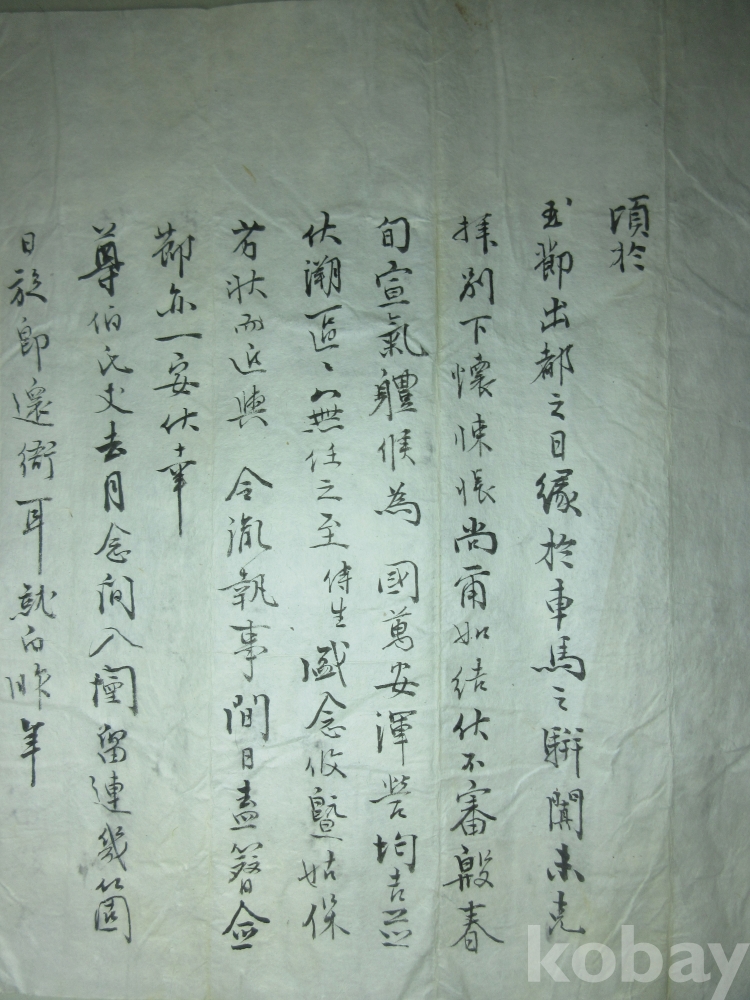 頃於
玉節出都之日緣於車馬之騈闐未克
拜別下懷悚悵尚甬如結伏不審殷春
旬宣氣體候為 國萬安渾營均吉並
伏溯區〻無任之至 侍生 盛念攸曁姑保
若狀而近與 令胤執事間日盍簪僉
節亦一安伏幸
尊伯氏丈去月念間入 留連幾箇
日旋即還衙耳就白昨年
kobay